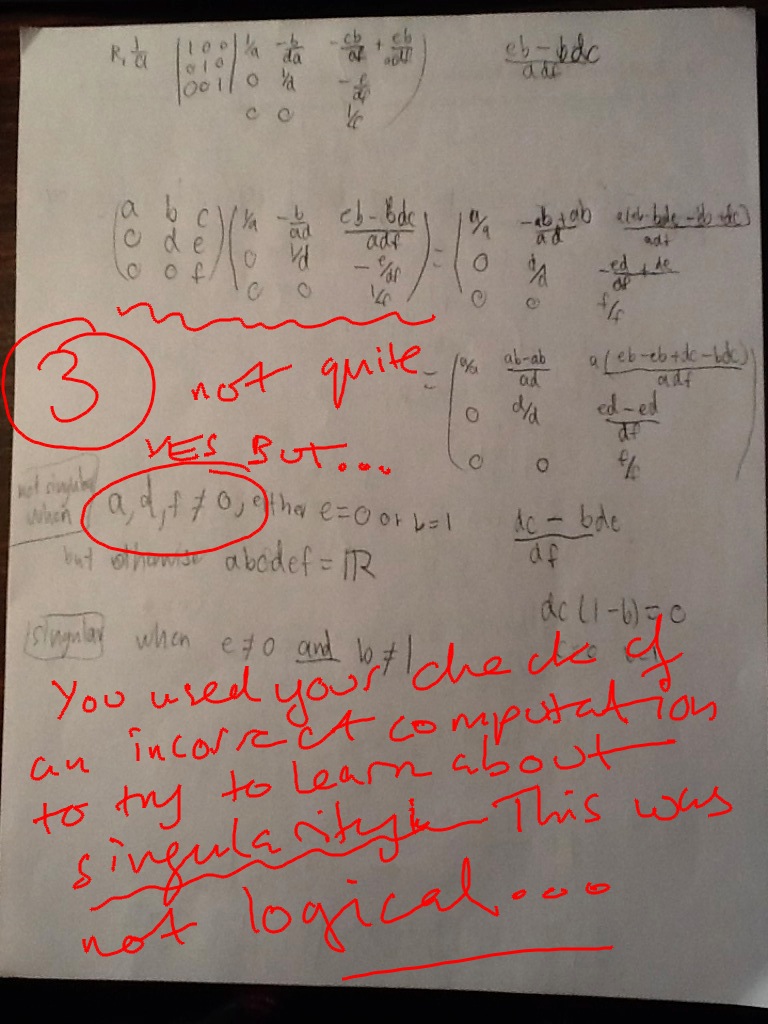 R₁ 1/a | 1 0 0 | 1/a -b/da -cb/af + eb/adf
0 1 0 0 1/d -e/df
0 0 1 0 0 1/f
(eb - bdc)/adf
(a b c) (1/a -b/ad (eb - bdc)/adf) = (a/a (-ab + ab)/ad
0 d e 0 1/d -e/df 0 d/d -ed/df + de
0 0 f 0 0 1/f 0 0 f/f
3 not quite
= (a/a (ab - ab)/ad a(eb - eb + dc - bdc)/adf)
0 d/d (ed - ed)/df
0 0 f/f
YES BUT...
not singular when a, d, f ≠ 0, either e = 0 or b = 1
but otherwise abcdef = ℝ
(dc - bdc)/df
dc(1 - b) = 0
singular when e ≠ 0 and b ≠ 1
You used your check of
an incorrect computation
to try to learn about
singularity. This was
not logical....